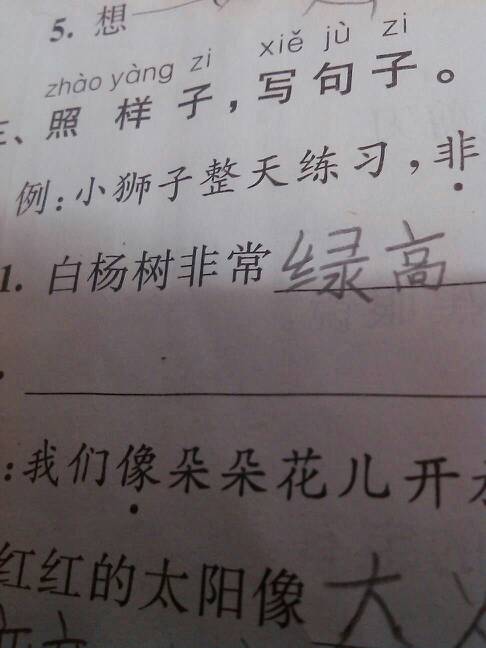 5. 想
zhào yàng zi xiě jù zi
三、照样子，写句子。
例：小狮子整天练习，非
1. 白杨树非常绿高
：我们像朵朵花儿开
红红的太阳像大